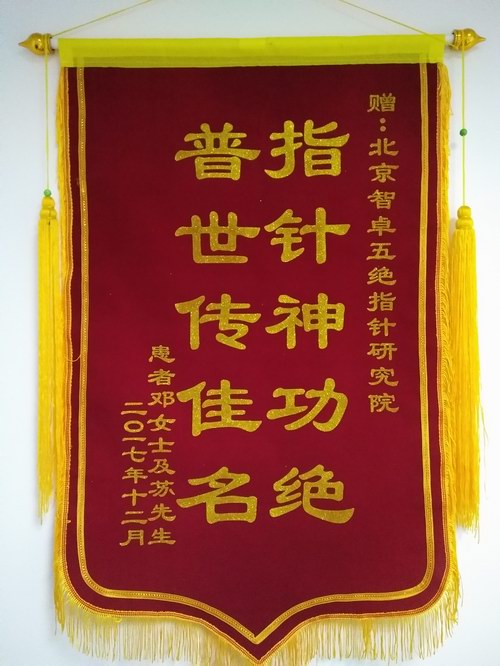 赠：北京智卓五绝指针研究院
指针神功绝
普世传佳名
患者邓女士及苏先生
二〇一七年十二月